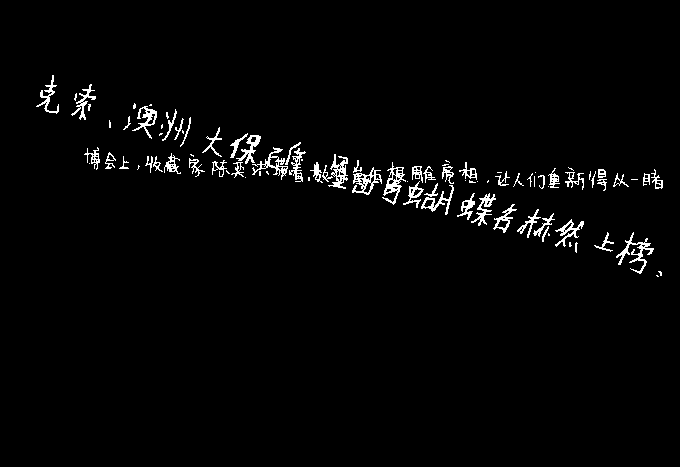 克索、澳洲大保礁、皇蛾蝴蝶谷赫然上榜、
博会上，收藏家陈奕洪带着数件根雕亮相，让人们重新得以一睹